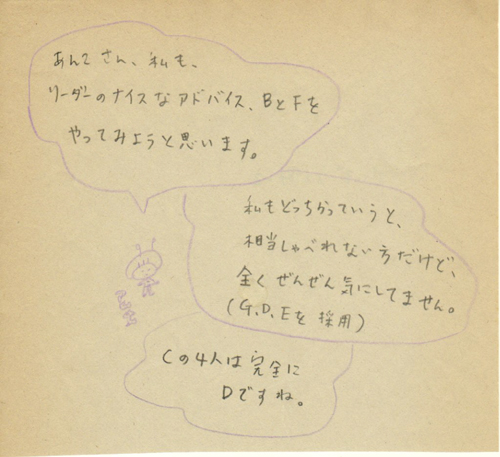 あんてさん、私も、
リーダーのナイスなアドバイス、BとFを
やってみようと思います。
私もどっちかっていうと、
相当しゃべれない方だけど、
全くぜんぜん気にしてません。
(G、D、Eを採用)
Cの4人は完全に
Dですね。